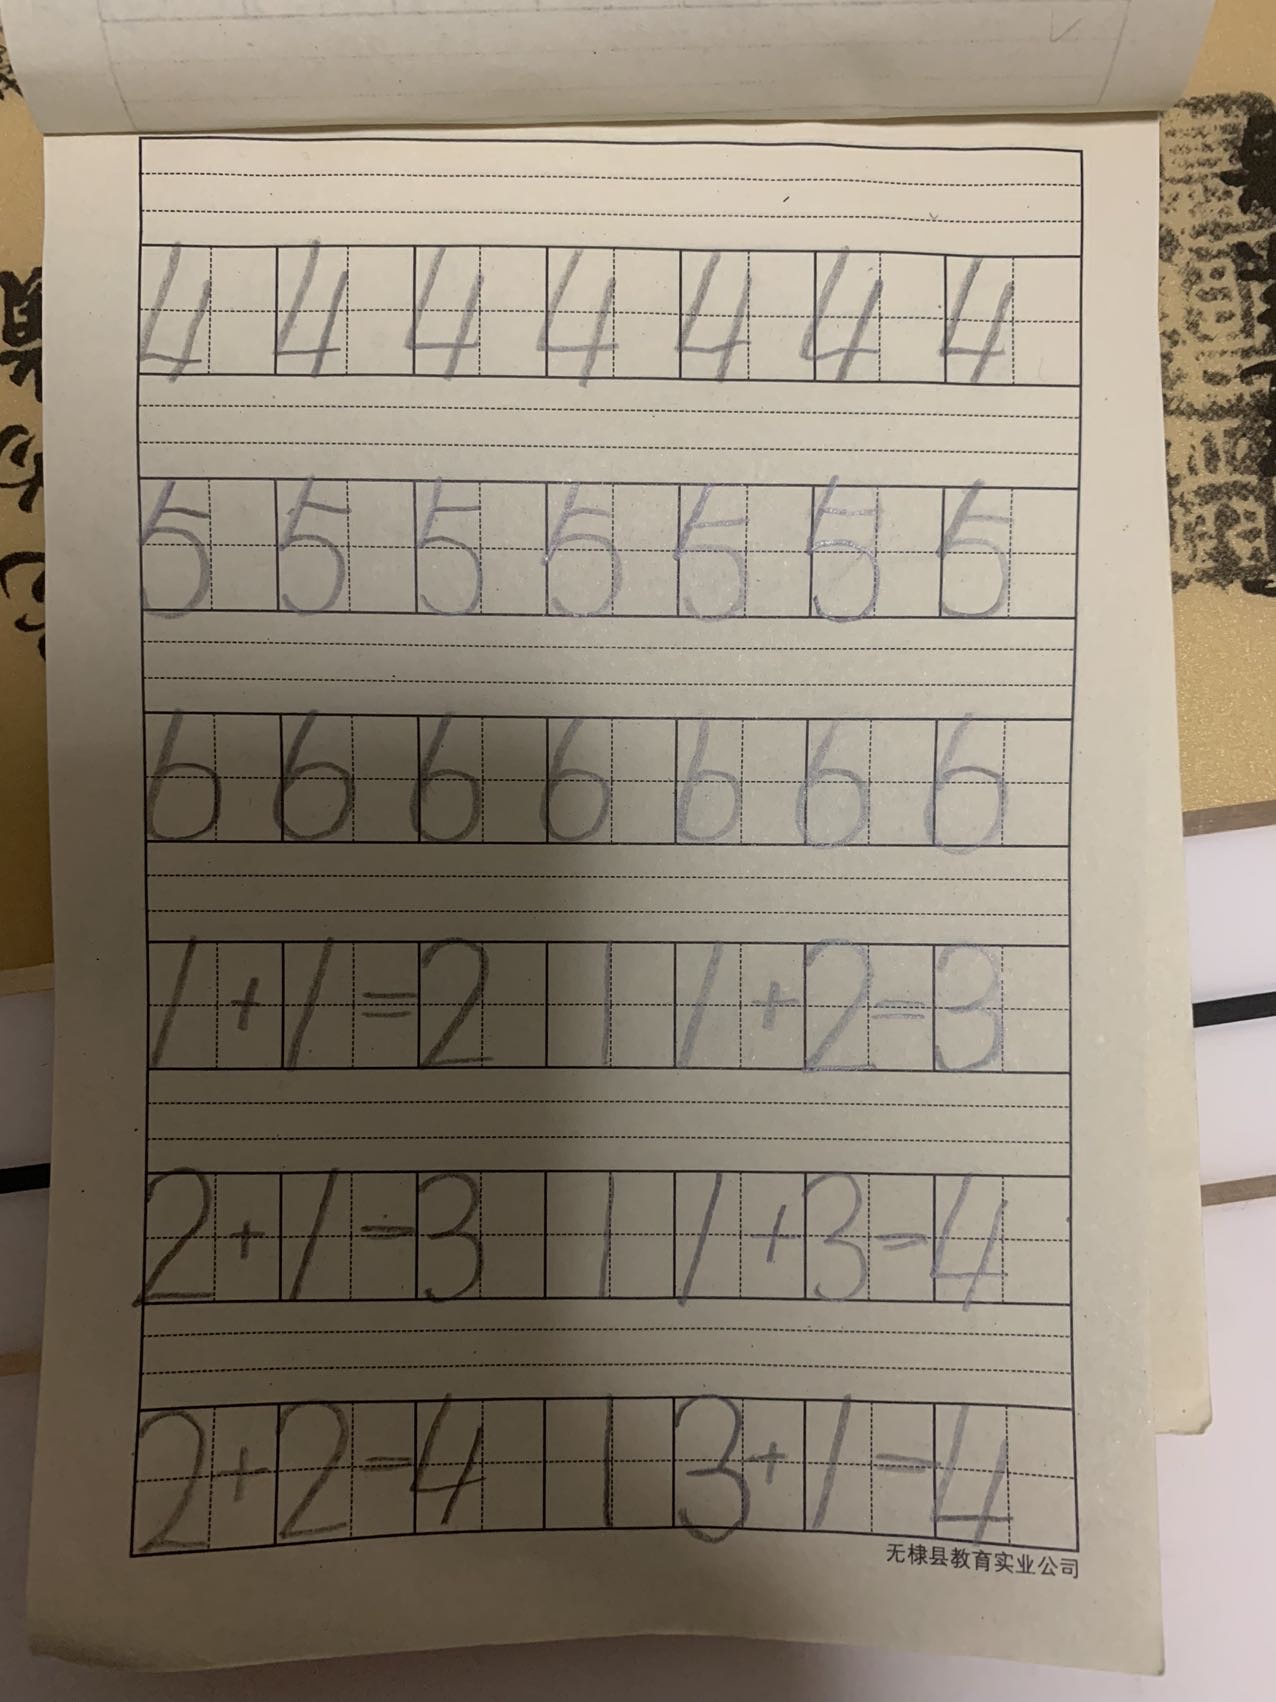 4 4 4 4 4 4 4
5 5 5 5 5 5 5
6 6 6 6 6 6 6
1+1=2 | 1+2=3
2+1=3 | 1+3=4
2+2=4 | 3+1=4
无棣县教育实业公司